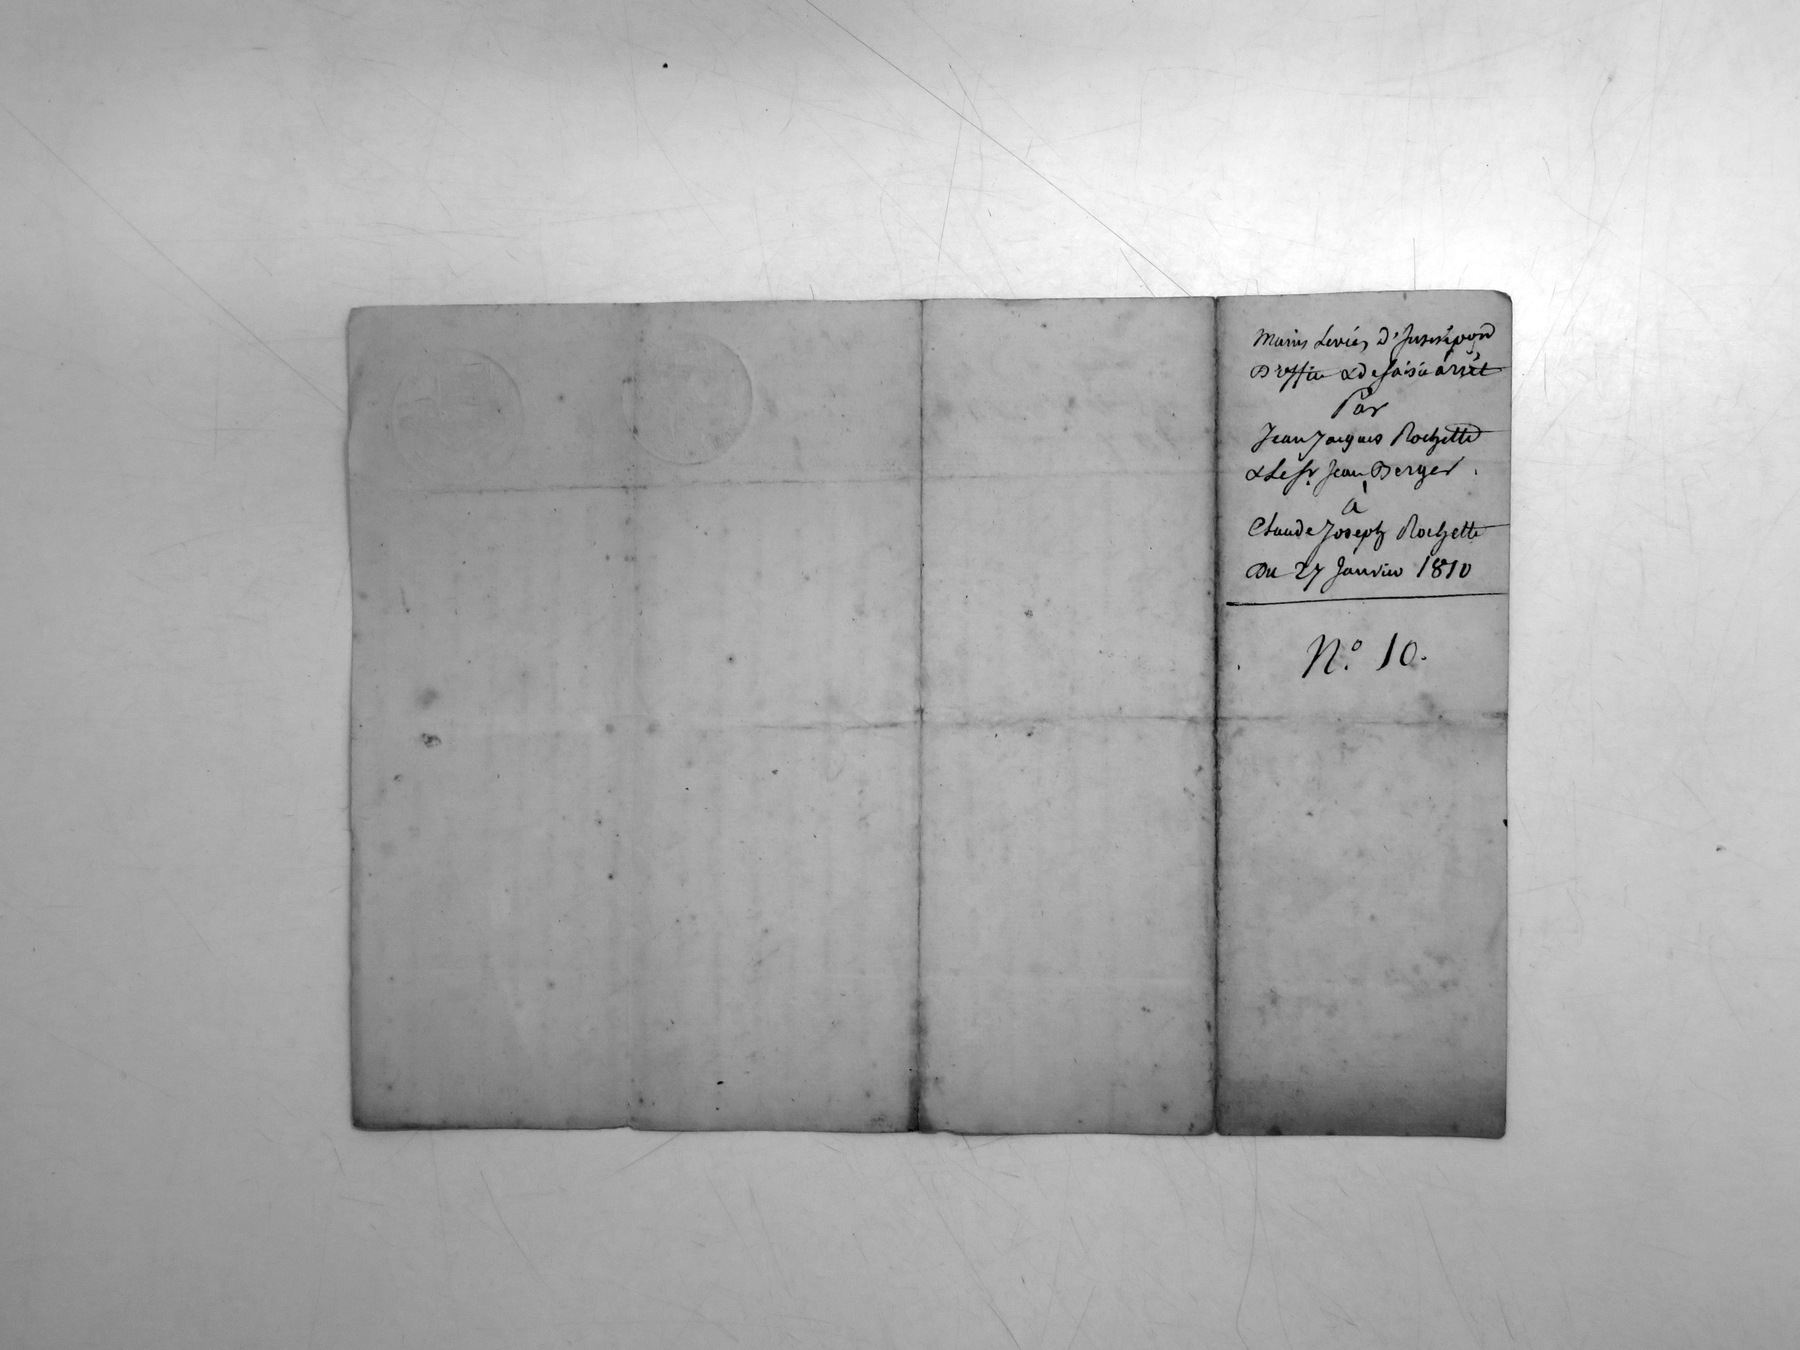 Mains Levées d'Inscription
D'office & de saisie arrêt
Par
Jean Jacques Rochette
& Le Sr. Jean Berger.
à
Claude Joseph Rochette
Du 27 Janvier 1810
N.º 10.